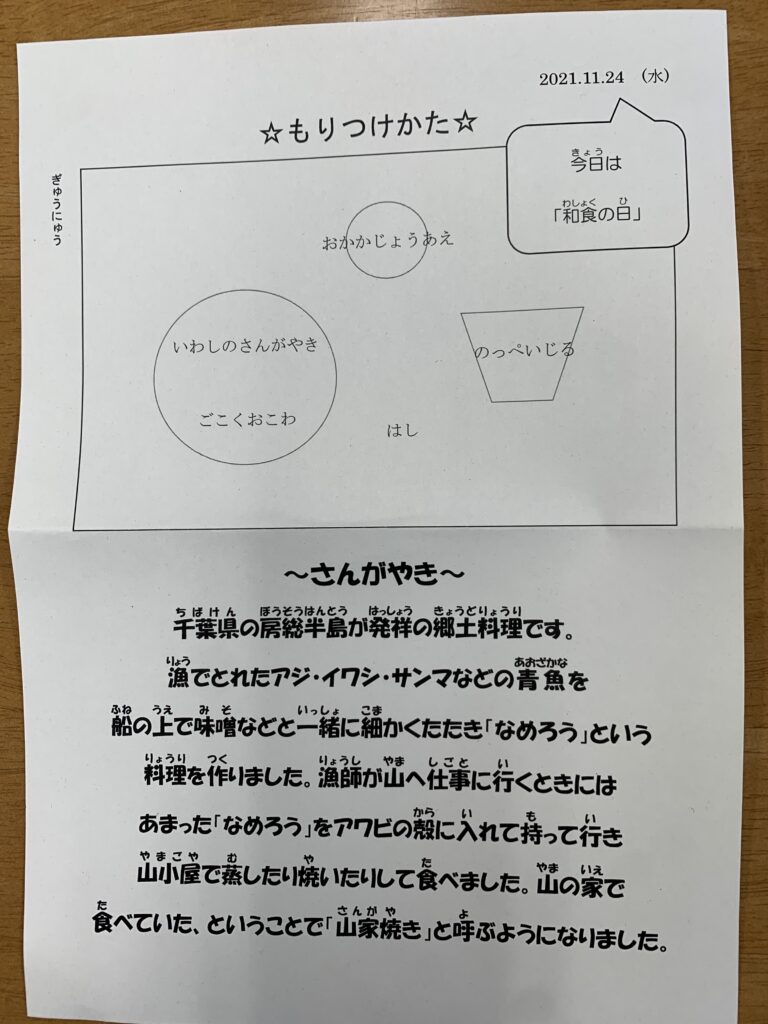 2021.11.24 （水）
☆もりつけかた☆
きょう
今日は
わしょく ひ
「和食の日」
ぎゅうにゅう
おかかじょうあえ
いわしのさんがやき
のっぺいじる
ごこくおこわ
はし
～さんがやき～
ちばけん ぼうそうはんとう はっしょう きょうどりょうり
千葉県の房総半島が発祥の郷土料理です。
りょう あおざかな
漁でとれたアジ・イワシ・サンマなどの青魚を
ふね うえ みそ いっしょ こま
船の上で味噌などと一緒に細かくたたき「なめろう」という
りょうり つく りょうし やま しごと い
料理を作りました。漁師が山へ仕事に行くときには
から い も い
あまった「なめろう」をアワビの殻に入れて持って行き
やまごや む や た やま いえ
山小屋で蒸したり焼いたりして食べました。山の家で
た さんがや よ
食べていた、ということで「山家焼き」と呼ぶようになりました。